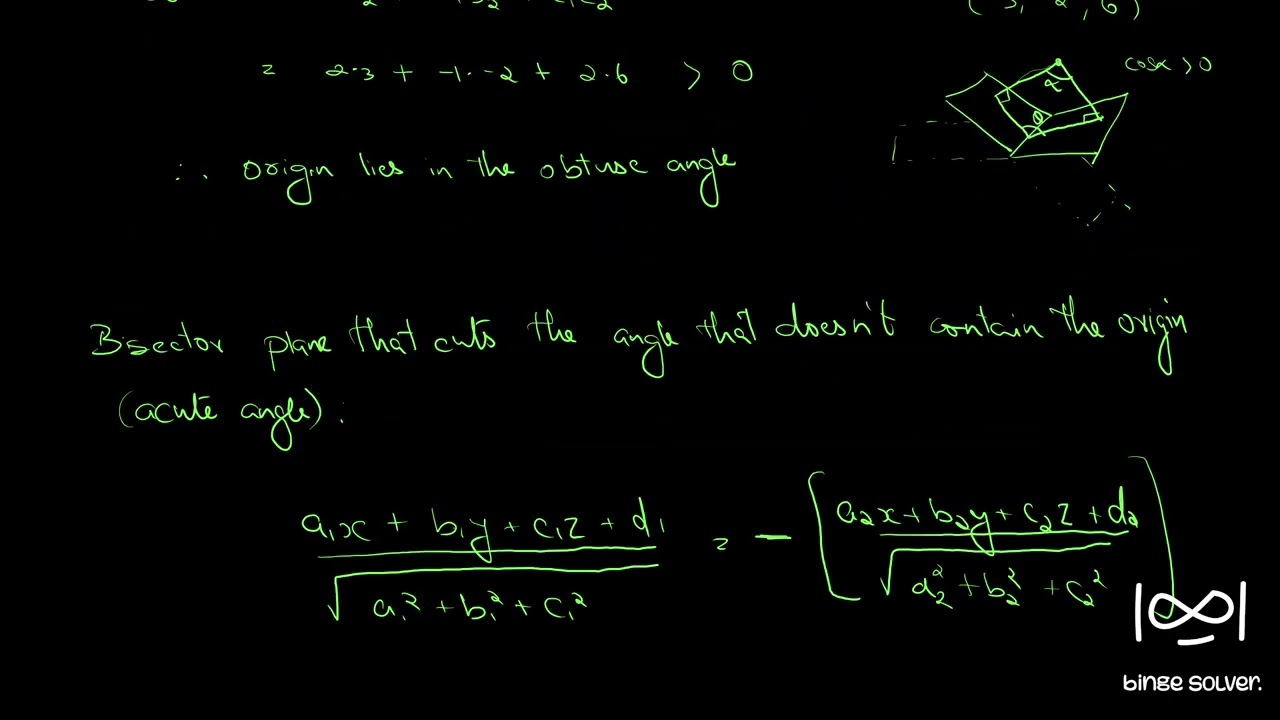 (3, -2, 6)
= 2·3 + -1·-2 + 2·6 > 0
cosα > 0
α
θ
∴ origin lies in the obtuse angle
Bisector plane that cuts the angle that doesn't contain the origin
(acute angle):
a₁x + b₁y + c₁z + d₁ = - [ a₂x + b₂y + c₂z + d₂ ]
√ a₁² + b₁² + c₁² √ a₂² + b₂² + c₂²
binge solver.